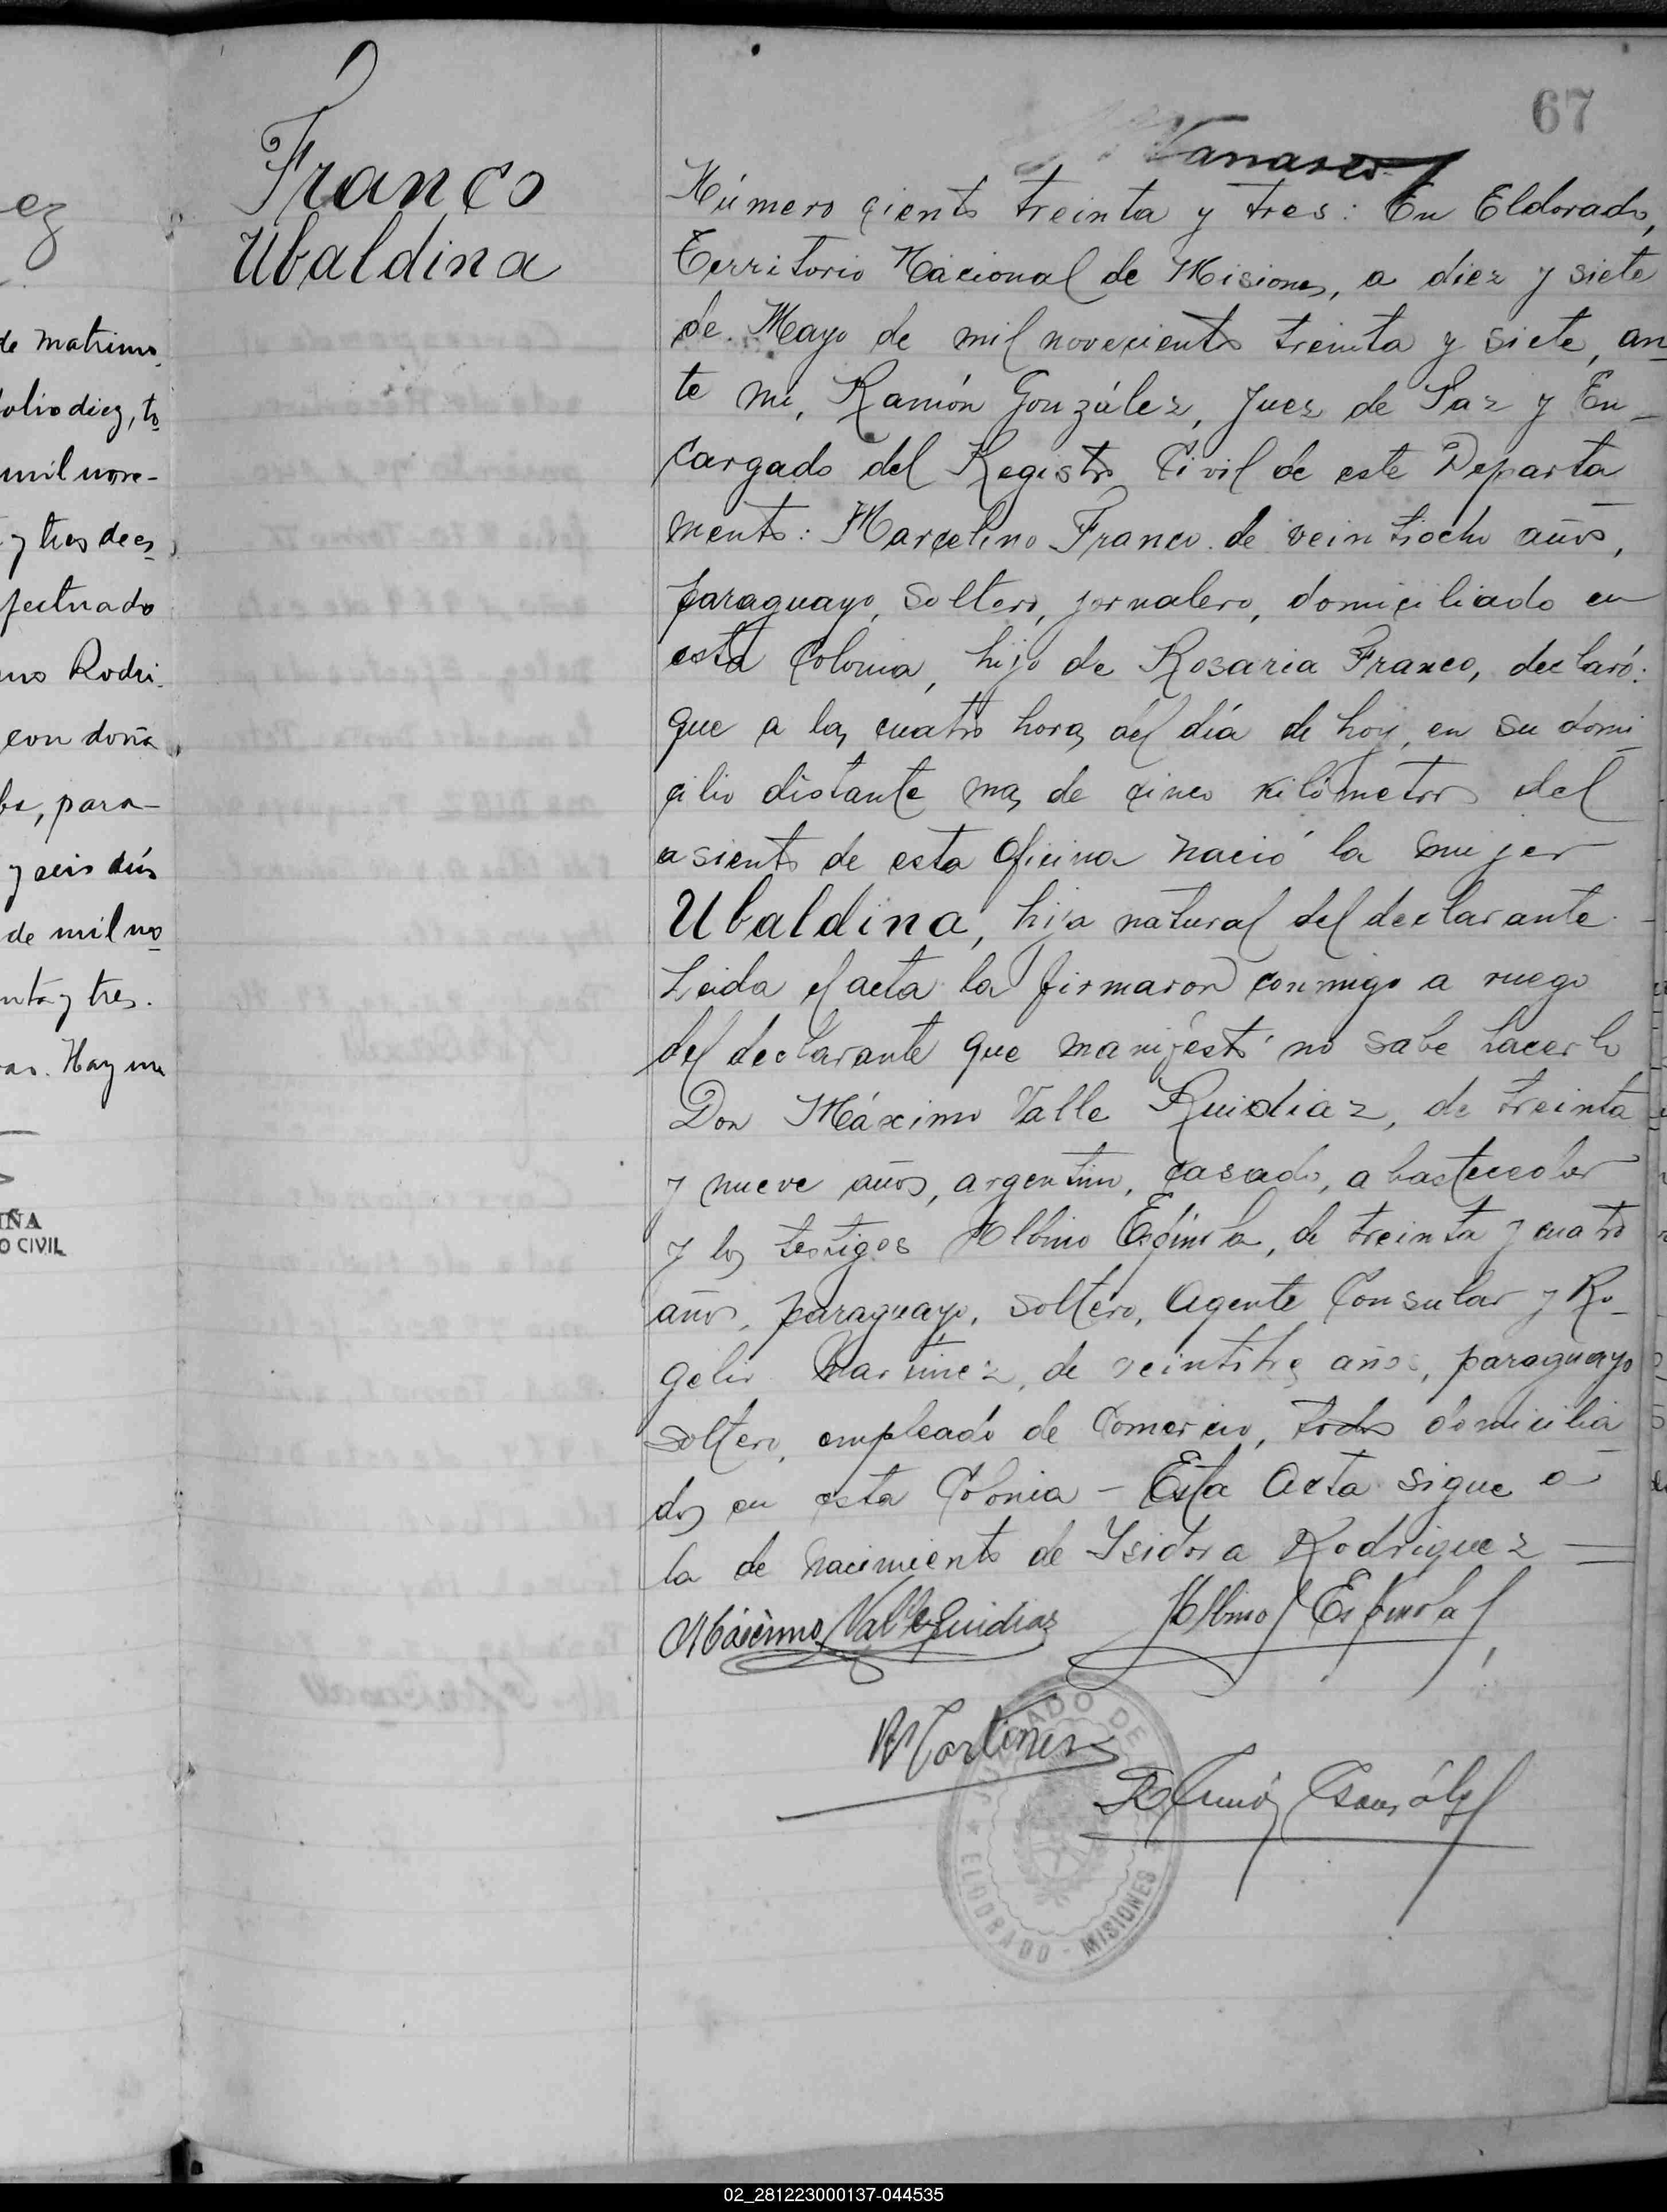 67
Franco
Ubaldina
Número ciento treinta y tres: En Eldorado,
Territorio Nacional de Misiones, a diez y siete
de Mayo de mil novecientos treinta y siete, an
te mi, Ramón González, Juez de Paz y En-
cargado del Registro Civil de este Departa
mento: Marcelino Franco de veintiocho años,
paraguayo, soltero, jornalero, domiciliado en
esta Colonia, hijo de Rosaria Franco, declaró:
que a las cuatro horas del día de hoy, en su domi
cilio distante mas de cinco kilómetros del
asiento de esta Oficina nació la mujer
Ubaldina, hija natural del declarante.
Leida el acta la firmaron conmigo a ruego
del declarante que manifestó no sabe hacerlo
Don Máximo Valle Ruidiaz, de treinta
y nueve años, argentino, casado, abastecedor
y los testigos Albino Espínola, de treinta y cuatro
años, paraguayo, soltero, Agente Consular y Ro-
gelio Martínez, de veintitres años, paraguayo
soltero, empleado de Comercio, todos domicilia
dos en esta Colonia - Esta Acta sigue a
la de nacimiento de Ysidora Rodriguez =
Máximo Valle Ruidiaz
Albino Espinola
R Martinez
Ramón González
JUZGADO DE
ELDORADO - MISIONES
ez
de matrimo
folio diez, to
mil nove-
y tres de es
fectuado
Rodri
con doña
, para-
y seis días
de mil no
nta y tres.
Hay un
IÑA
O CIVIL
02_281223000137-044535